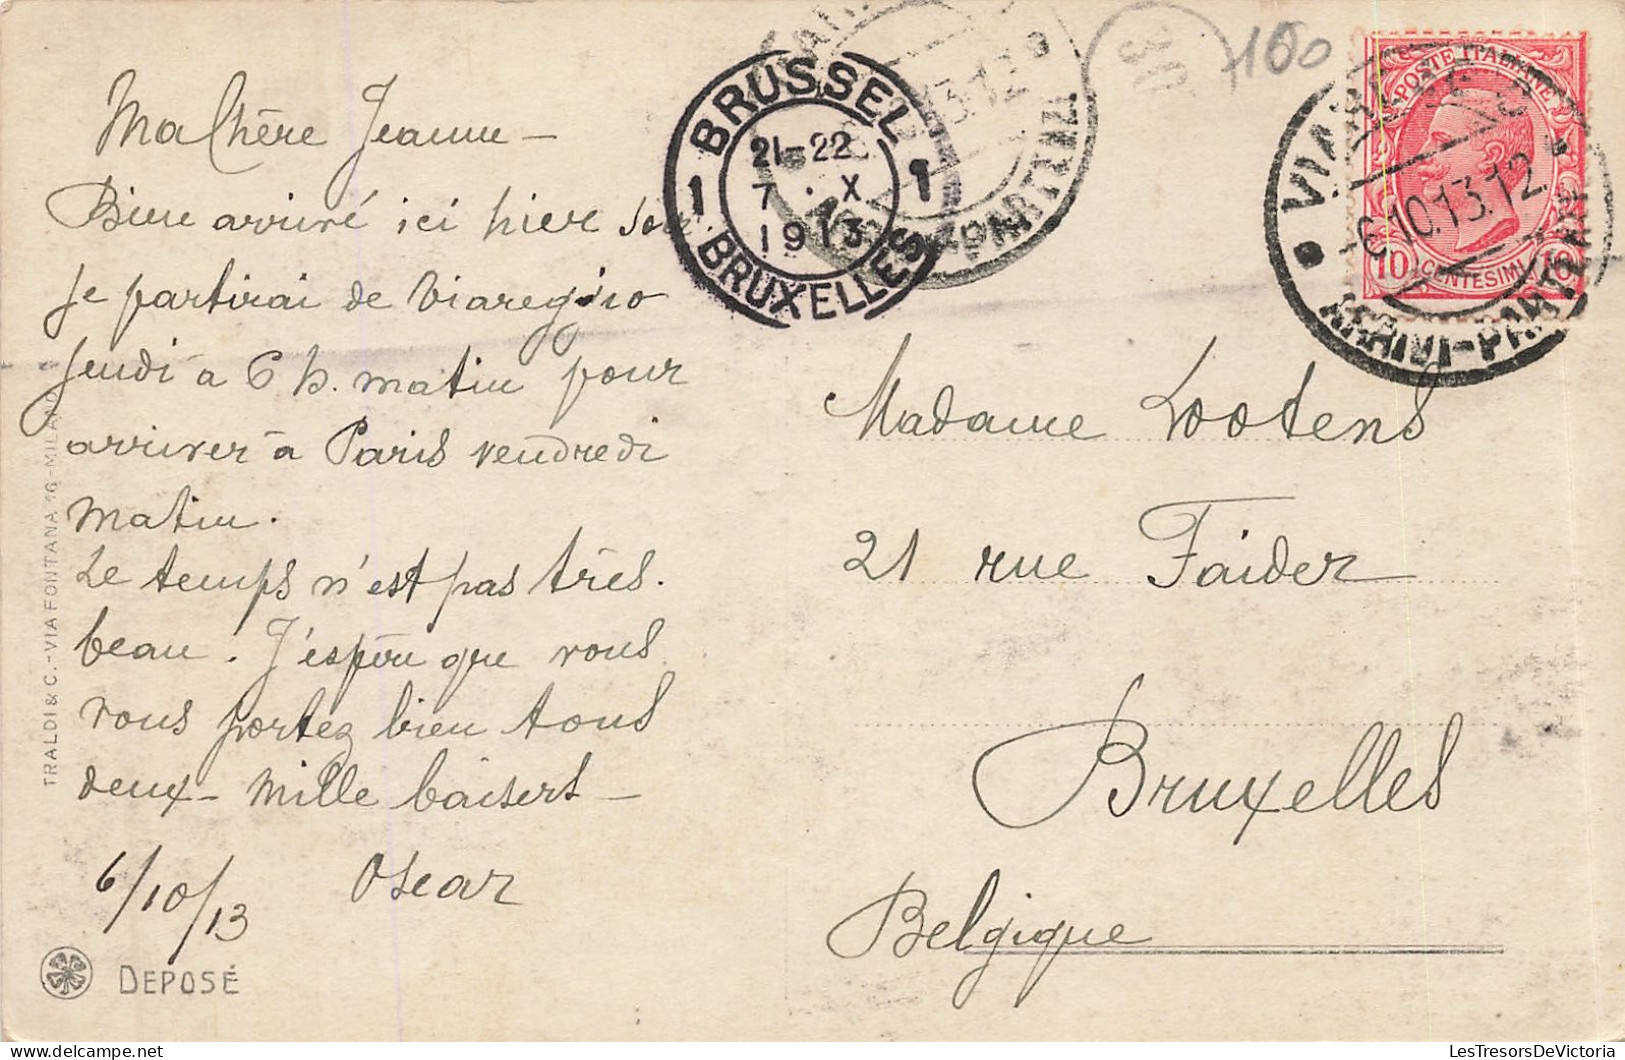 Ma Chère Jeanne –
Bien arrivé ici hier soir
Je partirai de Viareggio
Jeudi à 6 h. matin pour
arriver à Paris vendredi
matin.
Le temps n'est pas très
beau. J'espère que vous
vous portez bien tous
deux – mille baisers –
6/10/13 Oscar
DEPOSÉ
TRALDI & C. - VIA FONTANA 16 - MILANO
BRUSSEL 1
1 21-22
7 · X
1913
BRUXELLES
160
VIAREGGIO
6.10.13.12
ARRIVI-PARTENZE
POSTE ITALIANE
10 CENTESIMI 10
13.12
PARTENZ
Madame Lootens
21 rue Faider
Bruxelles
Belgique
LesTresorsDeVictoria